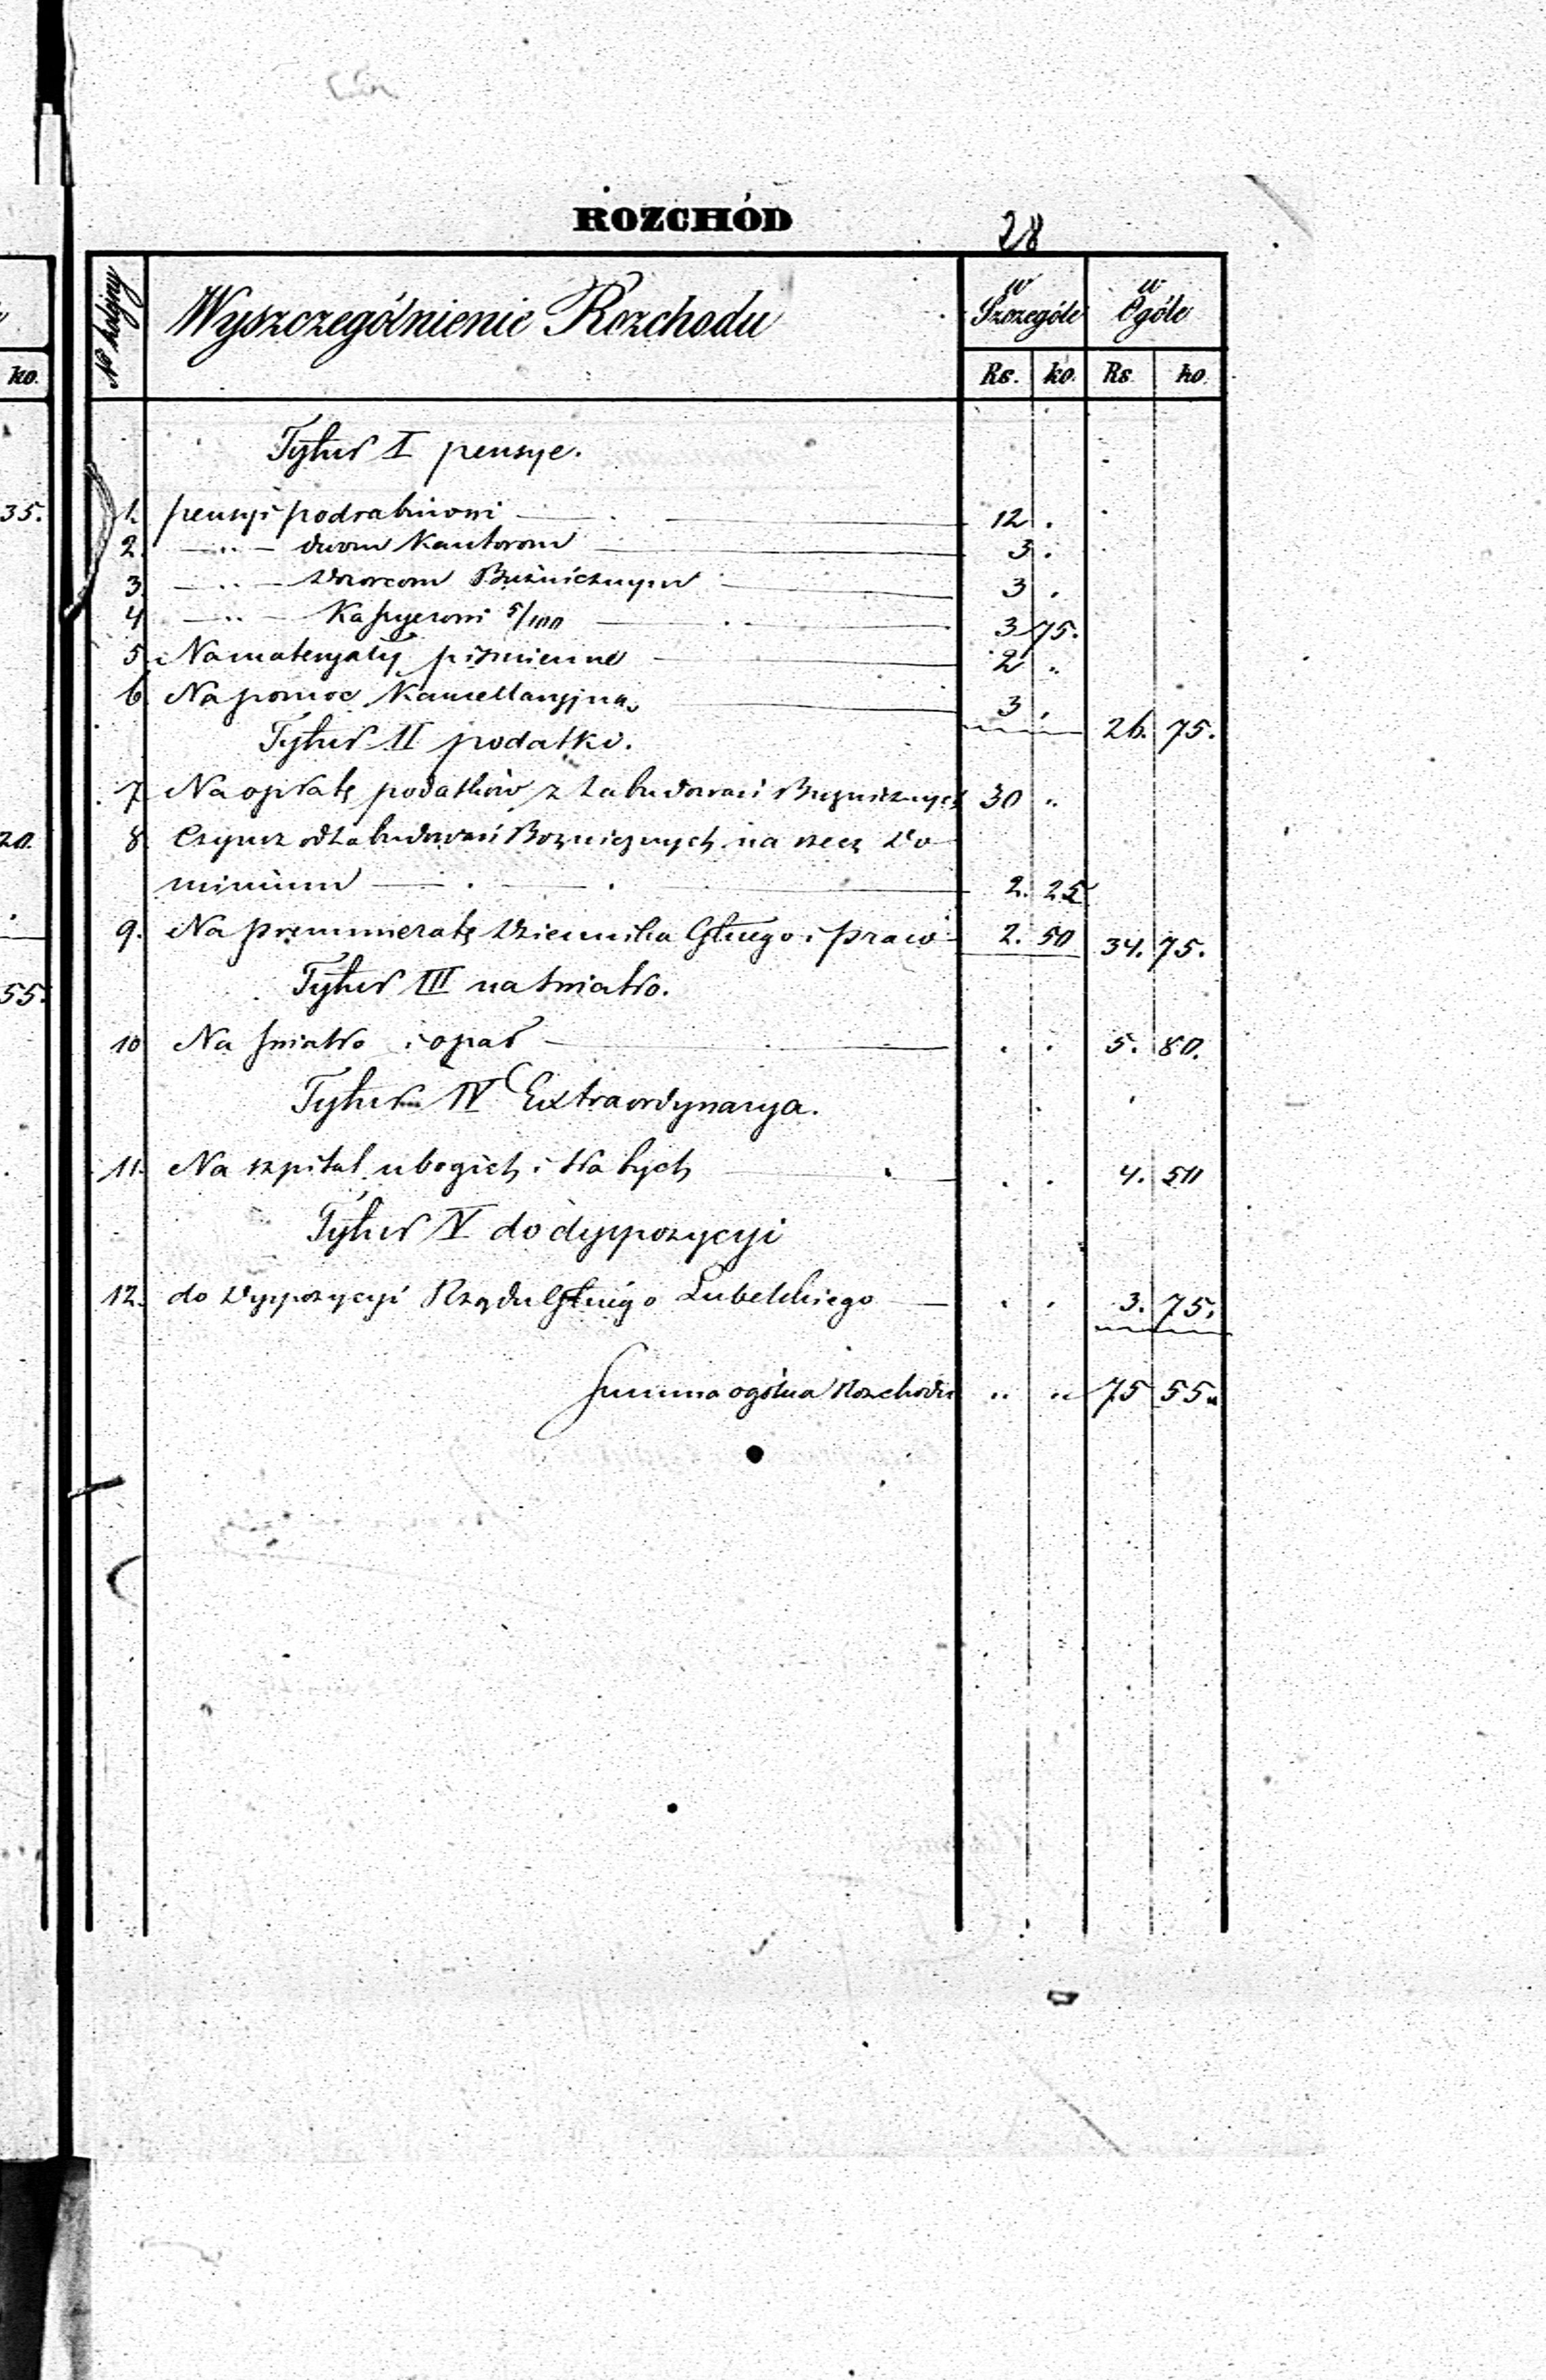 ROZCHÓD
28
No kolejny Wyszczególnienie Rozchodu w Szczególe w Ogóle
ko. Rs. ko. Rs ko.
Tytuł I pensye.
35. 1. pensyi podrabinowi 12 .
2. — " — dwom Kantorom 3 .
3. — " — Dozorcom Bużnicznym 3 .
4 — " — Kassyerowi 5/100 3 75.
5. Na materyały piśmienne 2 "
6. Na pomoc Kancellaryjną 3 .
26. 75.
Tytuł II podatki.
7. Na opłatę podatków z Zabudowań Bużnicznych 30 "
20. 8. Czynsz od Zabudowań Bożnicznych na rzecz Do
minium 2. 25
9. Na prenumeratę Dziennika Głnego i praw 2. 50 34. 75.
55. Tytuł III na światło.
10 Na światło i opał . . 5. 80.
Tytuł IV Extraordynarya.
11. Na szpital ubogich i słabych . . 4. 50
Tytuł V do dyspozycyi
12. do dyspozycyi Rządu Głnego Lubelskiego . . 3. 75.
Summa ogólna Rozchodu " " 75 55"